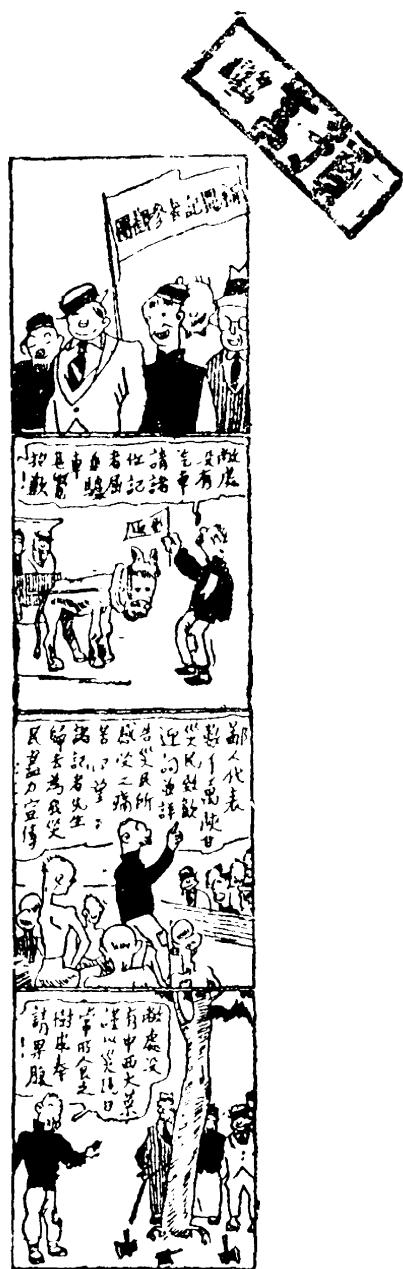 新聞記者參觀團
敝處
沒有
汽車
請諸
位記
者屈
坐驢
車
抱歉！
歡迎
鄙人代表
數千萬陝甘
災民致歡
迎詞並詳
告災民所
感受之痛
苦望
諸記者先生
歸去為我災
民盡力宣傳
敝處沒
有中西大菜
謹以災民日
常所食之
樹皮奉
請果腹！